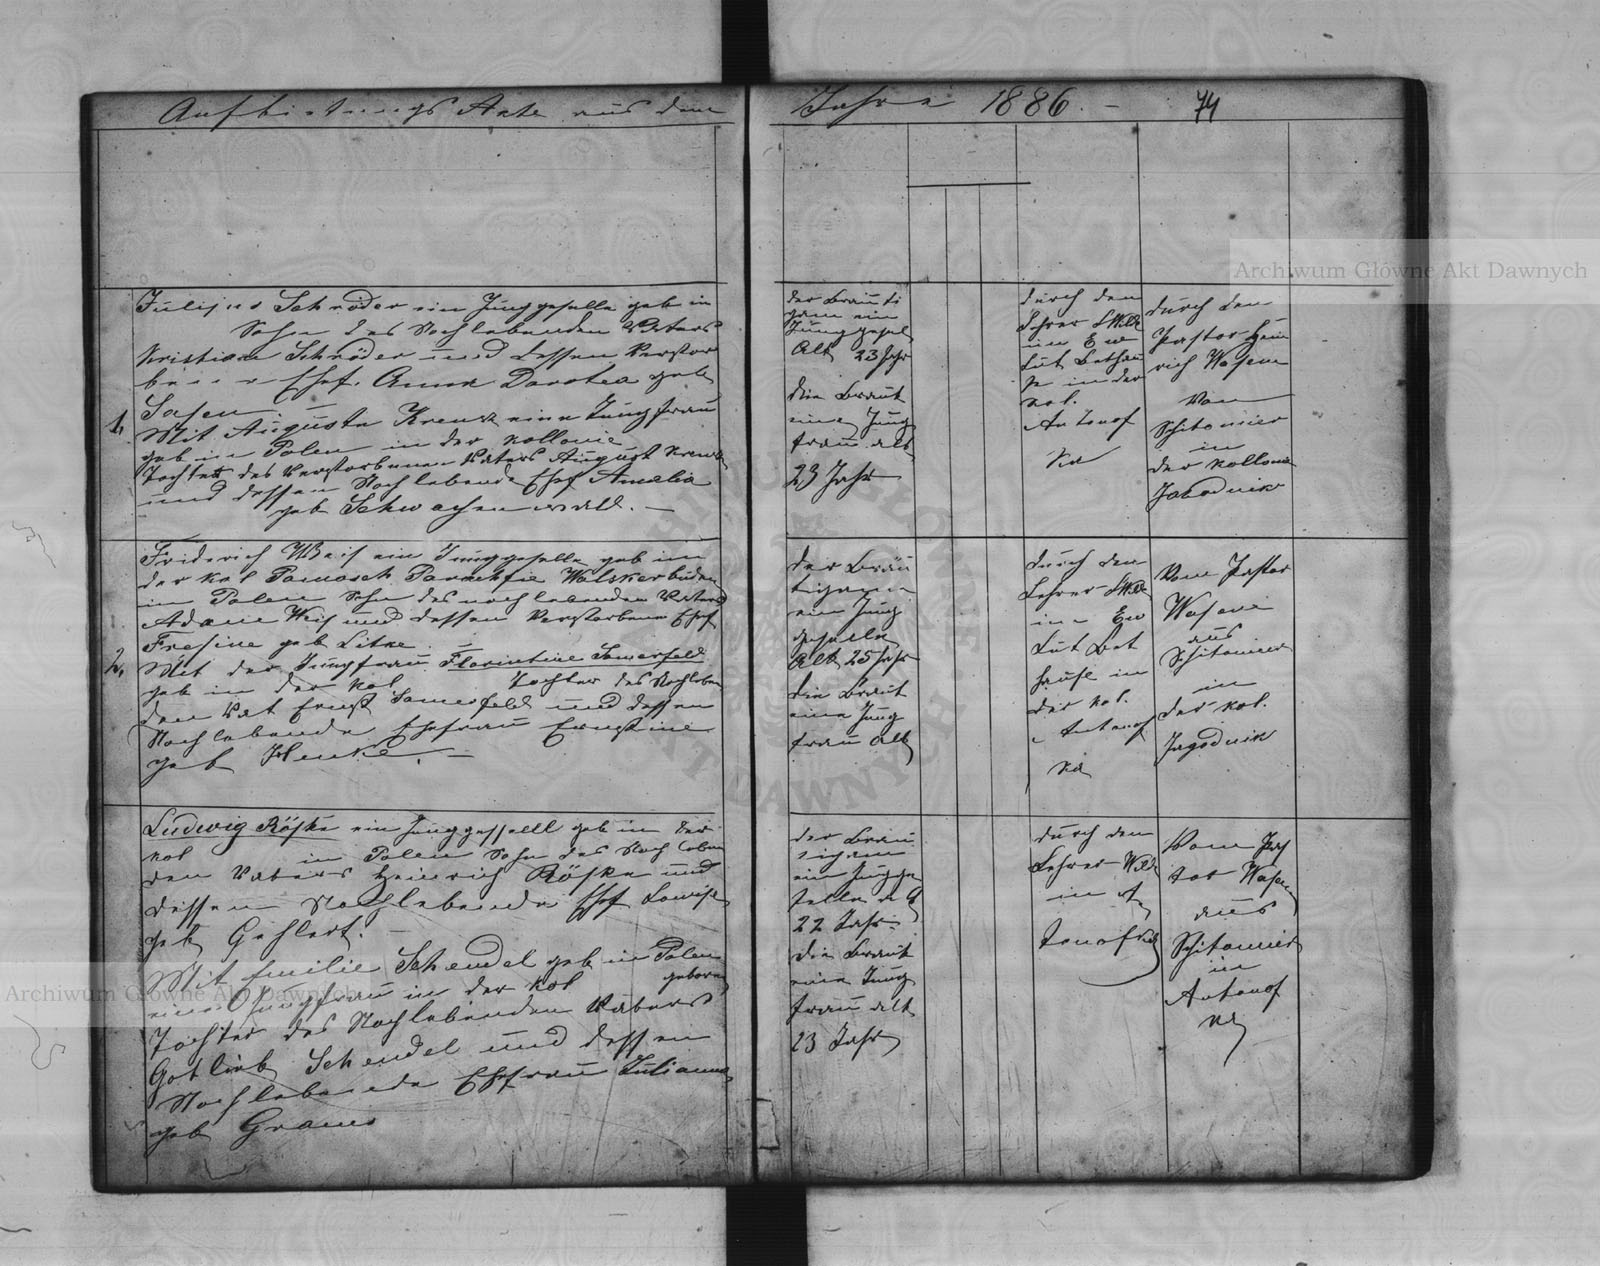 Aufbietungs Akte aus dem Jahre 1886. – 74
1.
Julijus Schröder ein Junggeselle geb in
Sohn des Nochlebenden Vaters
Kristian Schröder und dessen Verstor
bene Ehef. Anna Dorotea geb
Sasen –
Mit Auguste Krenz eine Jungfrau
geb in Polen in der Kollonie
Tochter des Verstorbenen Vaters August Krenz
und dessen Nochlebende Ehef Amalia
geb Schwachenwald. –
der Bräuti
gam ein
Junggesel
Alt 23 Jahr
die Braut
eine Jung
frau alt
23 Jahr
durch den
Lehrer Wilde
im Ew
Lut Bethau
se in der
Kol.
Antonof
ka
durch den
Pastor Hein
rich Wasem
von
Schitomier
in
der Kollonie
Jagodnik
2.
Friderich Weis ein Junggeselle geb im
der Kol
in Polen Sohn des noch lebenden Vaters
Adam Weis und dessen Verstorbene Ehef
geb Litke –
Mit der Jungfrau Florintine Somerfeld
geb in der Kol Tochter des Nochleben
den Vat Ernst Somerfeld und dessen
Nochlebende Ehefrau Ernstine
geb Henke. –
der Bräu
tigam
ein Jung
geselle
Alt 25 Jahr
die Braut
eine Jung
frau Alt
durch den
Lehrer Wilde
in Ew
Lut Bet
hause in
der Kol.
Antonof
ka
Vom Pastor
Wasem
aus
Schitomier
in
der Kol.
Jagodnik
Ludwig Röske ein Junggesselle geb in der
Kol in Polen Sohn des Noch leben
den Vaters Heinrich Röske und
dessen Nochlebende Ehef Lowise
geb Gehlert. –
Mit Emilie Schendel geb in Polen
eine Jungfrau in der Kol geboren
Tochter des Nochlebenden Vaters
Gotlieb Schendel und dessen
Nochlebende Ehefrau Julianna
geb Grams
der Bräu
tigam
ein Jungge
selle alt
22 Jahr
die Braut
eine Jung
frau alt
23 Jahr
durch den
Lehrer Wilde
in An
tonofka
Vom Pas
tor Wasem
aus
Schitomier
in
Antonof
ka
Archiwum Główne Akt Dawnych
Archiwum Główne Akt Dawnych